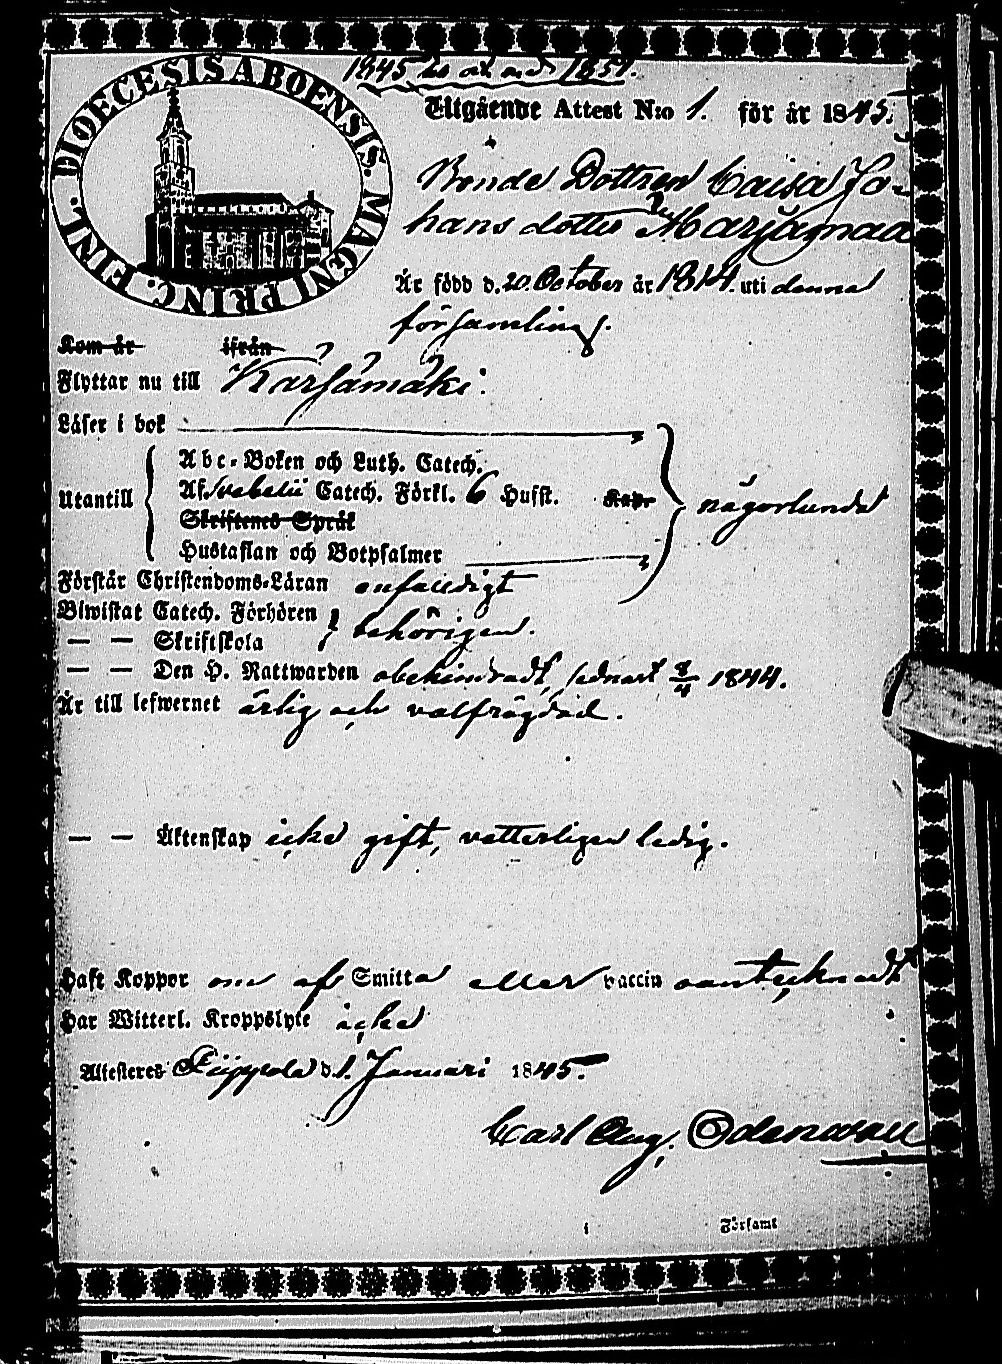 DIOECESIS ABOENSIS. MAGNI PRINC. FINL.
1845 1851.
Utgående Attest N:o 1. för år 1845.
Bonde Dottren Caisa Jo-
hans dotter Marjamaa
Är född d. 20 October år 1814. uti denna
församling.
Kom år ifrån
Flyttar nu till Kärsämäki.
Läser i bok
Utantill
Abc-Boken och Luth. Catech.
Af Svebelii Catech. Förkl. 6 Hufst. Kapr
Skriftenes Språk
Hustaflan och Botpsalmer
någorlunda
Förstår Christendoms-Läran enfaldigt
Biwistat Catech. Förhören
— — Skriftskola
behörigen.
— — Den H. Nattwarden obehindradt, sednast 8/4 1844.
Är till lefwernet ärlig och välfrägdad.
— — Äktenskap icke gift, vetterligen ledig.
Haft Koppor om af Smitta eller vaccin oantecknadt
Har Witterl. Kroppslyte icke
Attesteres Piippola d. 1. Januari 1845.
Carl Aug. Odenwall
i Församl